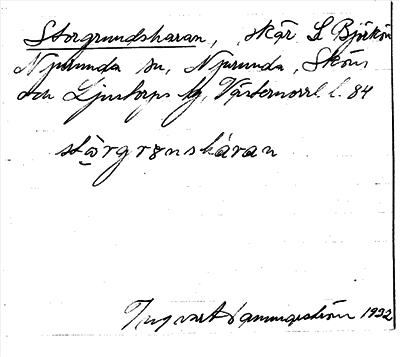 Storgrundsharan, skär S Björkön
Njurunda sn, Njurunda, Sköns
och Ljustorps tg, Västernorrl. l. 84
stòrgrønsháran
Ingvart 1932